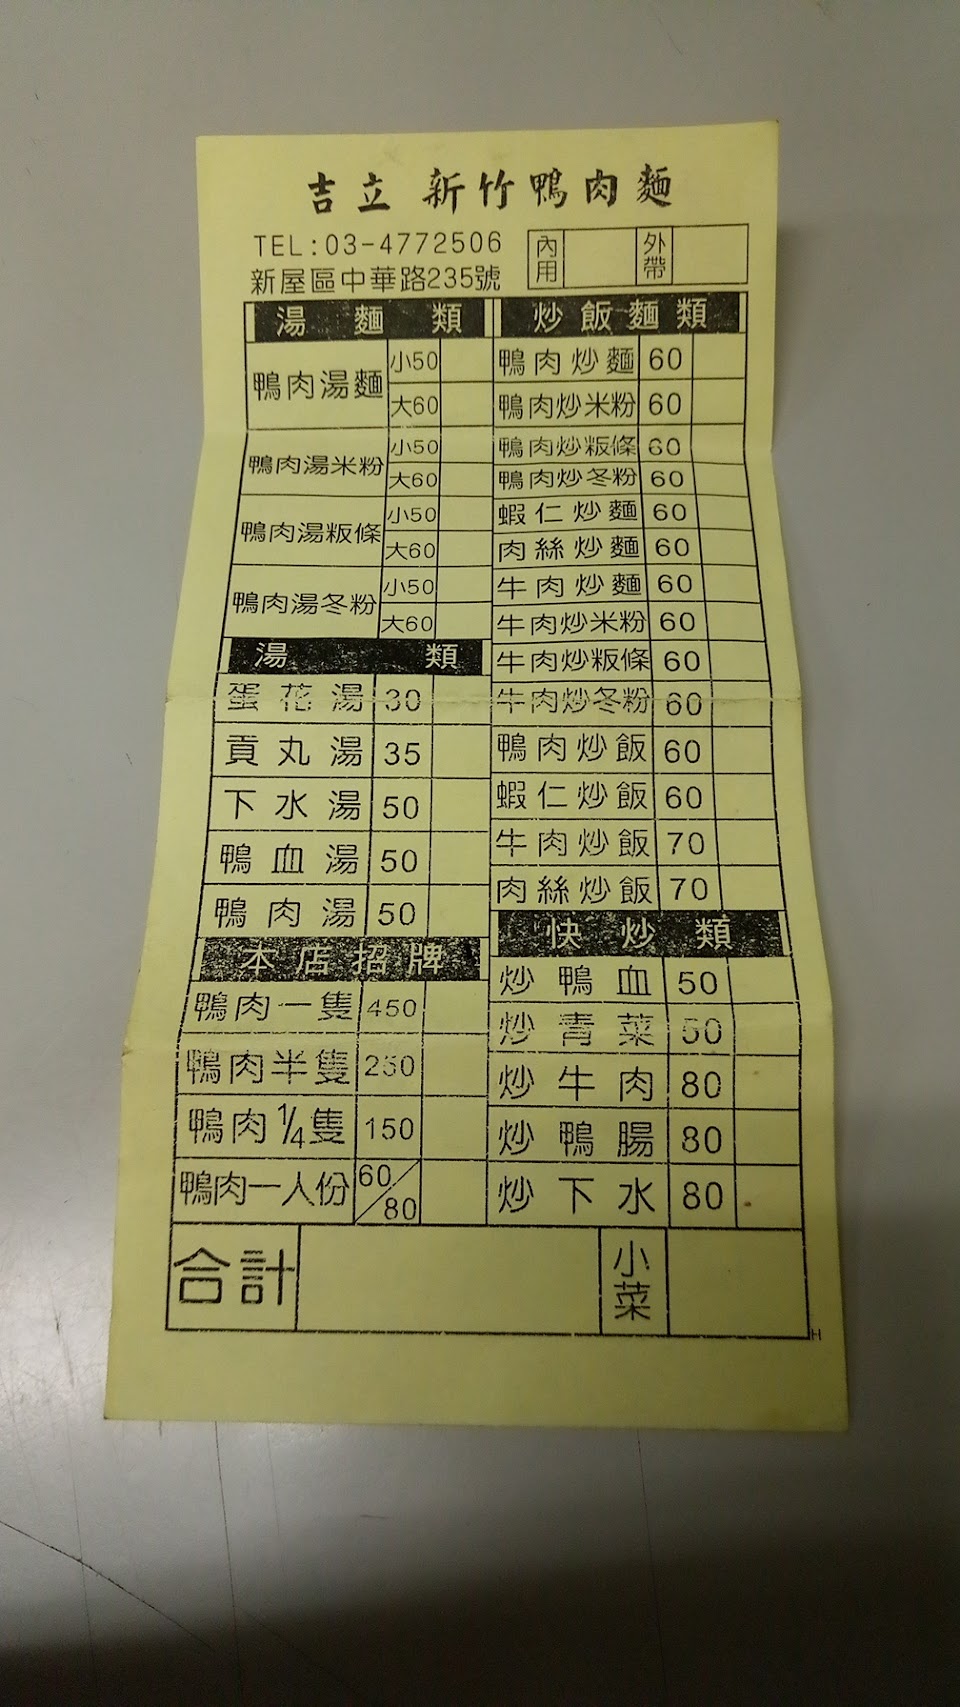 吉立 新竹鴨肉麵
TEL:03-4772506
新屋區中華路235號
內用 外帶
湯麵類
鴨肉湯麵 小50
大60
鴨肉湯米粉 小50
大60
鴨肉湯粄條 小50
大60
鴨肉湯冬粉 小50
大60
湯類
蛋花湯 30
貢丸湯 35
下水湯 50
鴨血湯 50
鴨肉湯 50
本店招牌
鴨肉一隻 450
鴨肉半隻 250
鴨肉1/4隻 150
鴨肉一人份 60/80
炒飯麵類
鴨肉炒麵 60
鴨肉炒米粉 60
鴨肉炒粄條 60
鴨肉炒冬粉 60
蝦仁炒麵 60
肉絲炒麵 60
牛肉炒麵 60
牛肉炒米粉 60
牛肉炒粄條 60
牛肉炒冬粉 60
鴨肉炒飯 60
蝦仁炒飯 60
牛肉炒飯 70
肉絲炒飯 70
快炒類
炒鴨血 50
炒青菜 50
炒牛肉 80
炒鴨腸 80
炒下水 80
合計 小菜
H